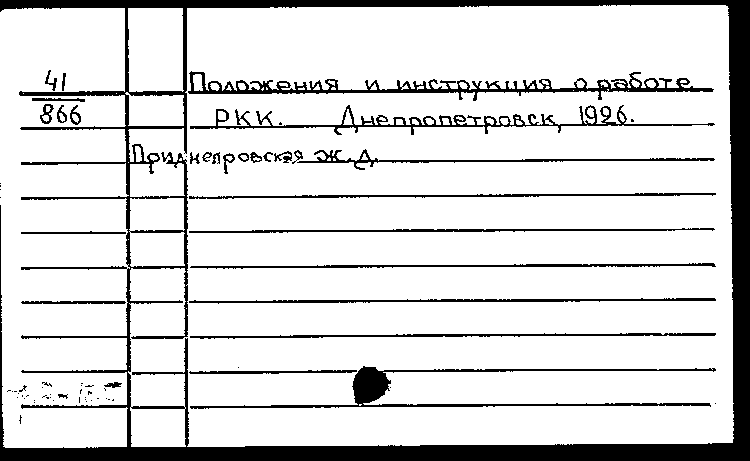 41
866
Положения и инструкция о работе
РКК. Днепропетровск, 1926.
Приднепровская ж.д.